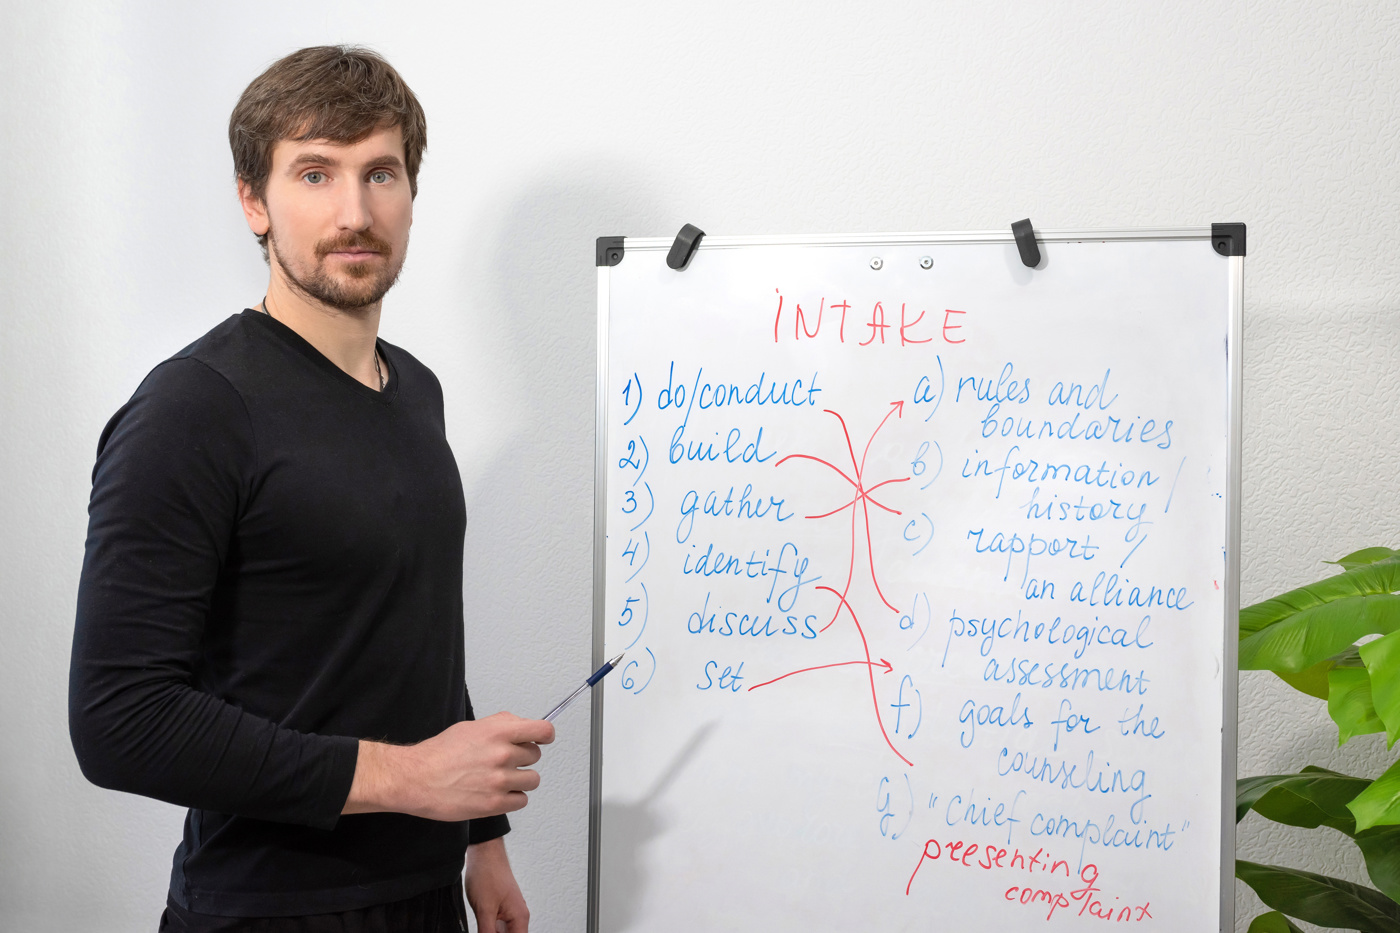 INTAKE
1) do/conduct
2) build
3) gather
4) identify
5) discuss
6) set
a) rules and
boundaries
b) information /
history
c) rapport /
an alliance
d) psychological
assessment
f) goals for the
counseling
g) "chief complaint"
presenting
complaint